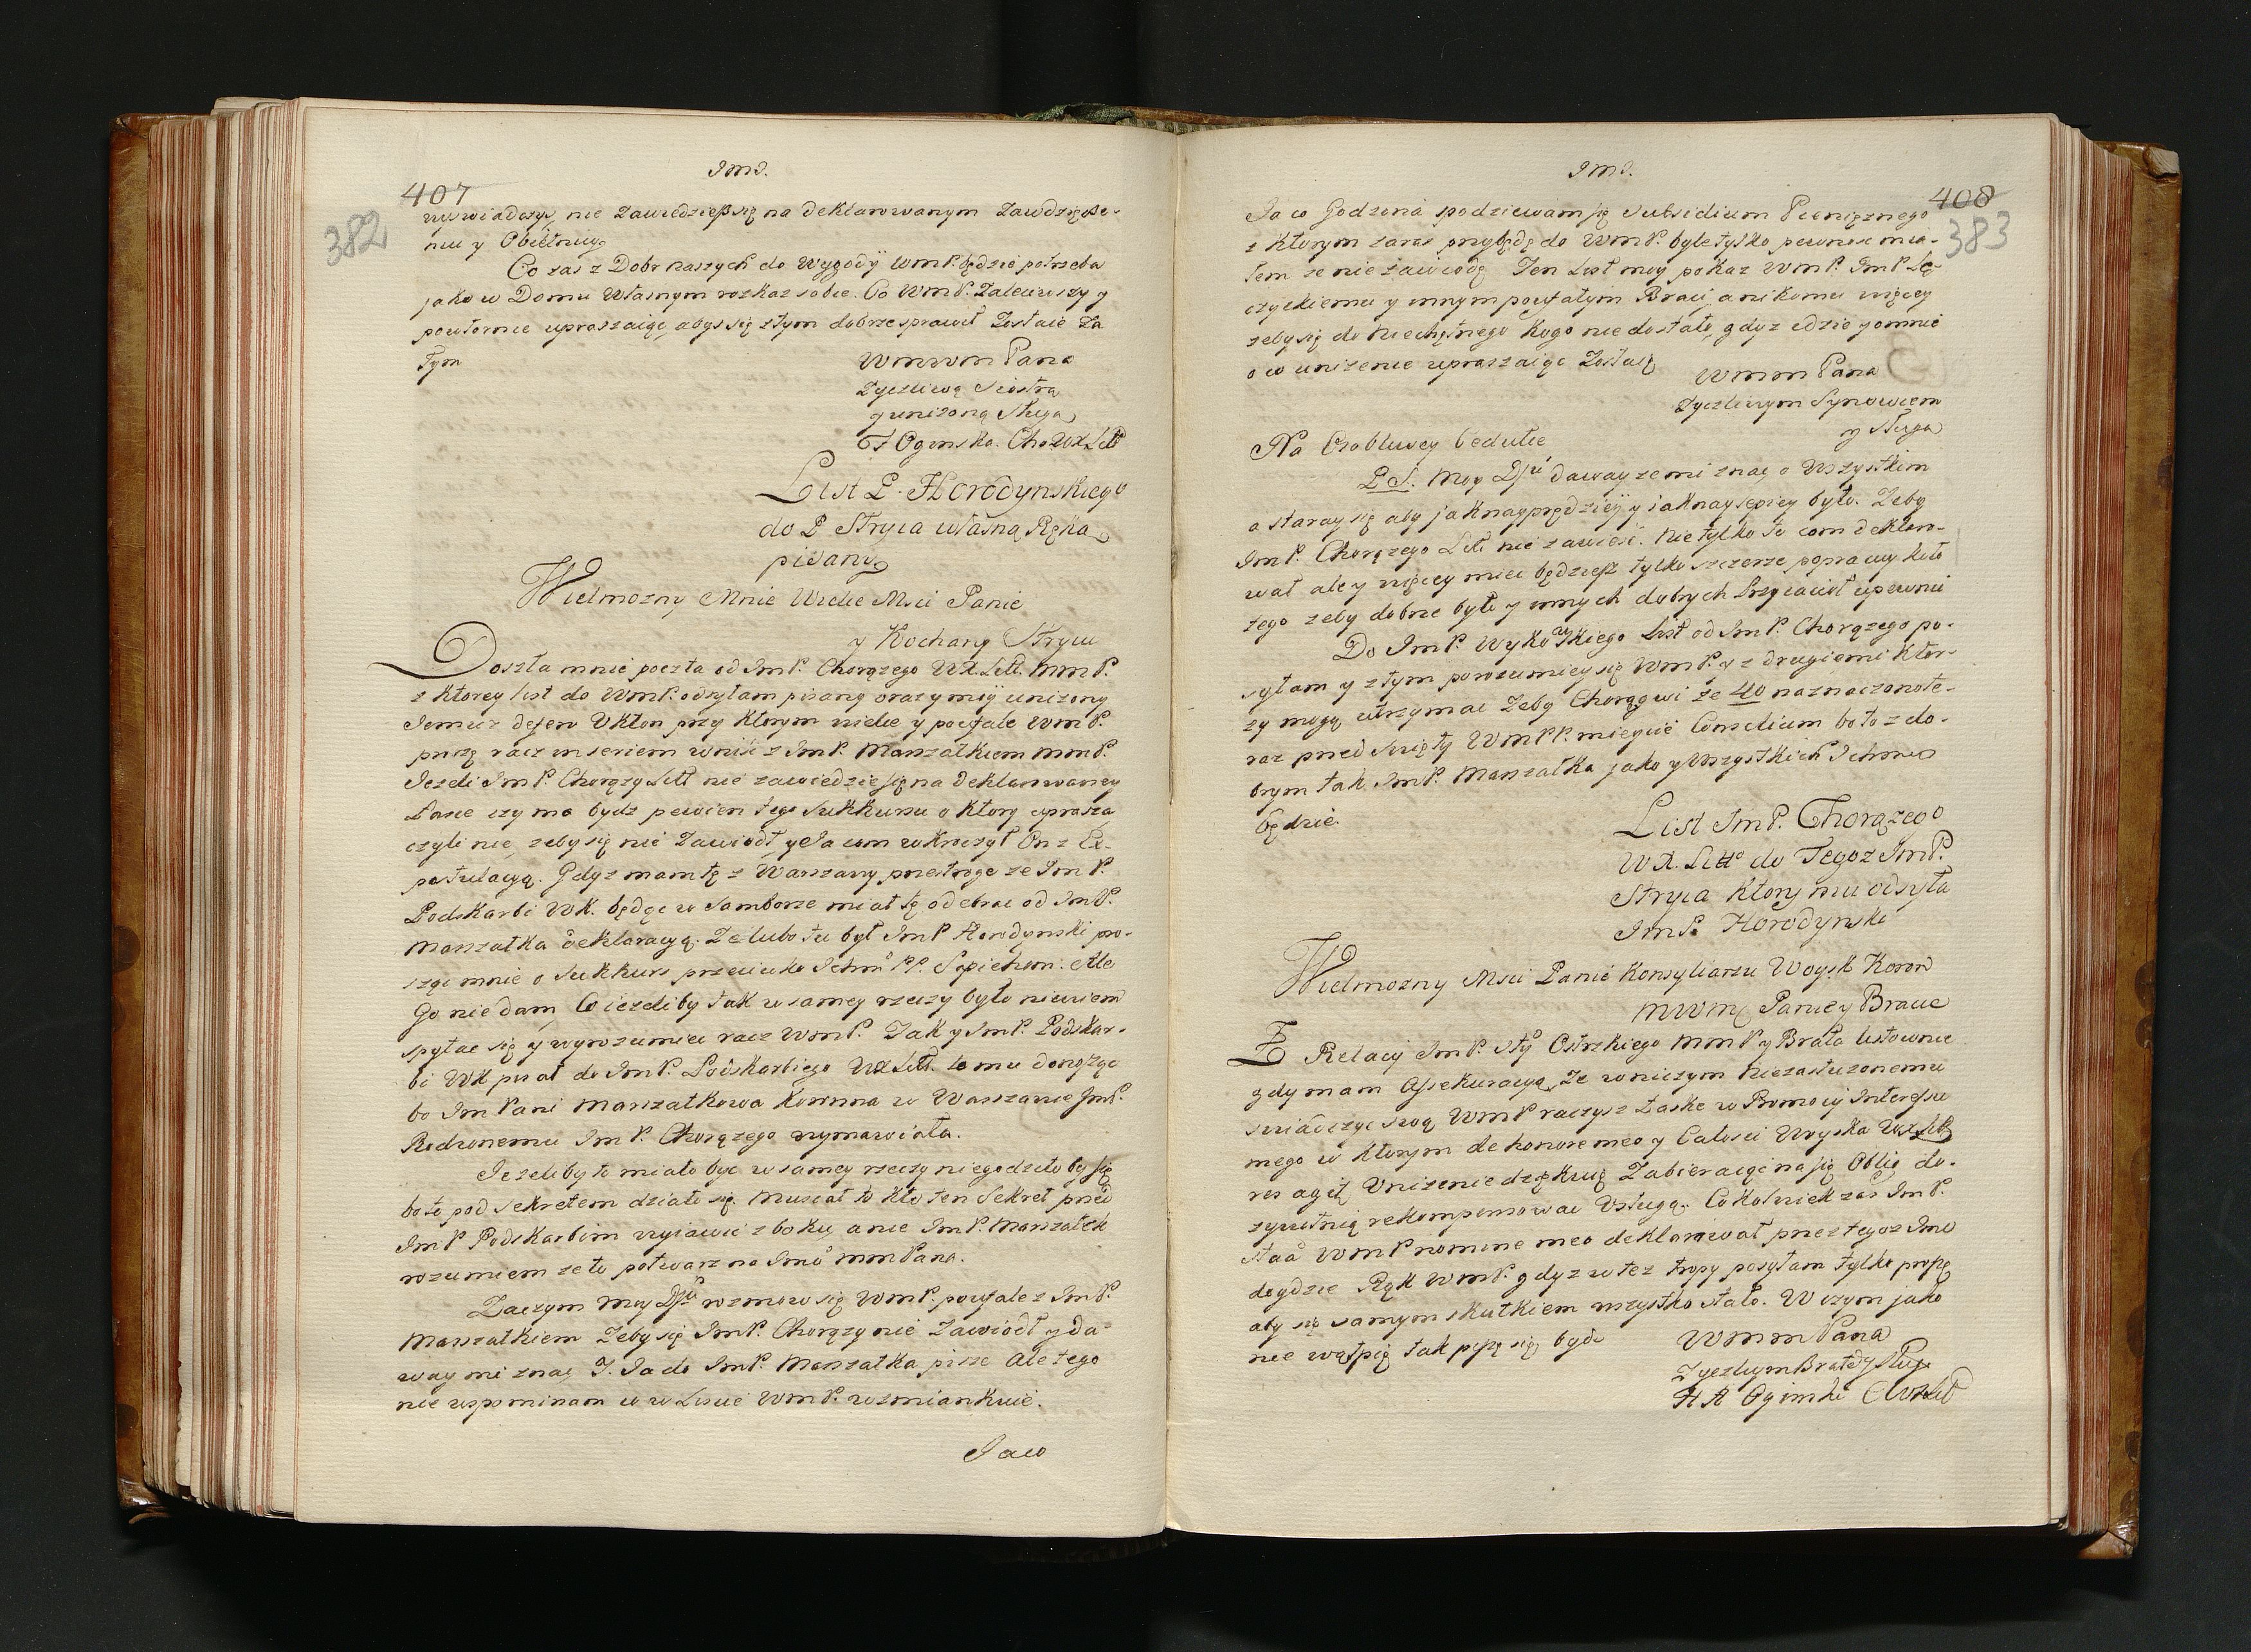 407
382
wyswiadczys, nie zawiedziesz się na deklarowanym zawdzięcze-
niu y Obietnicy
Co zas z Dobr naszych do Wygody WmP. będzie potrzeba
jako w Domu Własnym roskaz sobie. Co WmP. Zaleciwszy y
powtornie upraszaiąc, abys się z tym dobrze sprawił Zostaie Za
tym
WmWm Pana
Zyczliwą Siostrą
y unizoną Sługą
Oginska. Cho WXLitt
List P. Horodynskiego
do P Stryia własną Ręką
pisany
Wielmozny Mnie Wielce Msci Panie
y Kochany Stryiu
Doszła mnie poczta od ImP. Chorązego WX. Litt. MmP.
z ktorey list do WmP. odsyłam pisany oraz y moy unizony
defero Ukłon przy ktorym wielce y poufale WmP.
proszę racz in seriem wniść z ImP. Marszałkiem MmP.
Jezeli ImP. Chorązy Litt nie zawiedzie się na deklarowaney
Łasce czy ma bydz pewien tego Sukkursu o ktory uprasza,
czyli nie, zeby się nie Zawiodł, y Ja com wkroczył On z Ex-
postulacyą. Gdyz mam tę z Warszawy przestrogę ze ImP.
Podskarbi WK. będąc w Samborze miał tę odebrać od ImP.
Marszałka deklaracyą. Ze lubo tu był ImP Horodynski pro-
sząc mnie o Sukkurs przeciwko Ichmć PP. Sapiehom. Ale
Go nie dam, Co iezeliby tak w samey rzeczy było niewiem
spytac się y wyrozumiec racz WmP. Jak y ImP. Podskar-
bi WK pisał do ImP. Podskarbiego WXLitt. to mu donosząc
bo Im Pani Marszałkowa Koronna w Warszawie ImP.
Rodzonemu ImP. Chorązego wymawiała.
Jezeliby to miało byc w samey rzeczy niegodziło by się
bo to pod sekretem działo się. Musiał to kto ten Sekret przed
ImP Podskarbim wyiawic z boku, a nie ImP. Marszałek
rozumiem ze to potwarz na Imć MmPana.
Zaczym moy Dju rozmow się WmP. poufale z ImP.
Marszałkiem Zeby się ImP. Chorązy nie Zawiodł y da-
way mi znac, J. Ja do ImP. Marszałka pisze Ale tego
nie wspominam co w Liscie WmP. wzmiankuie.
Jaco
408
383
Ja co Godzina spodziewam się Subsidium Pienięznego
z ktorym zaraz przybędę do WmP. byle tylko pewnosc mia-
łem ze nie zawiodę Ten List moy pokaz WmP. ImP. Łę-
czyckiemu y innym poufałym Braci, a nikomu więcey
zeby się do Niechętnego Kogo nie dostało, gdyz idzie y o mnie
o co unizenie upraszaiąc Zostaię
WmmPana
Zyczliwym Synowcem
y Sługą
Na Osobliwey Cedulce
P.S. Moy Dju daway ze mi znac, o Wszystkim
a staray się aby jak nayprędziey y iak naylepiey było. Zeby
ImP. Chorązego Litt nie zawiesc. Nie tylko to com deklaro-
wał ale y więcey miec będziesz tylko szczerze popracuy koło
tego zeby dobrze było y innych dobrych Przyiaciół upewnij
Do ImP. Wykowskiego List od ImP. Chorązego po-
syłam y z tym porozumiey się WmP. y z drugiemi ktor-
zy mogą utrzymac Zeby Chorągwi ze 40 naznaczono te-
raz przed Swięty WmPP. mieycie Consilium bo to z do-
brym tak ImP. Marszałka jako y Wszystkich Ichmciow
będzie
List ImP. Chorązego
WX. Litto do Tegoz ImP.
Stryia ktory mu odsyła
ImP. Horodynski
Wielmozny Msci Panie Konsyliarzu Woysk Koron
MWmć Panie y Bracie
Z Relacij ImP. Stty Ostrzkiego MmP y Brata listownie
gdy mam Assekuracyą, Ze w niczym niezasłuzonemu
swiadcząc swoą WmP raczysz Łaskę w Promocij Interessu
mego w ktorym de honore meo y Całosci Woyska WXLitt
res agit, Unizenie dziękuię Zabieraiąc na się Oblig do-
zywotnią rekompensowac Usługą. Cokolwiek zas ImP.
Stta WmP nomine meo deklarował przez tegoz Imci
doydzie Rąk WmP. gdyz w tez tropy posyłam tylko proszę
aby się samym skutkiem wszystko stało. W czym jako
nie wątpię tak piszę się bydz
WmmPana
Zyczliwym Bratem y Sługą
Oginski ChWXLitt